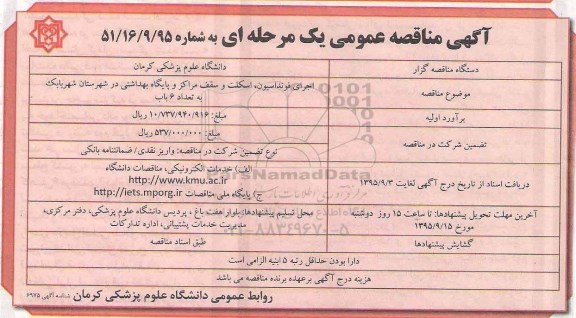 آگهی مناقصه عمومی یک مرحله ای به شماره ۵۱/۱۶/۹/۹۵
دستگاه مناقصه گزار
دانشگاه علوم پزشکی کرمان
موضوع مناقصه
اجرای فونداسیون، اسکلت و سقف مراکز و پایگاه بهداشتی در شهرستان شهربابک
به تعداد ۶ باب
برآورد اولیه
مبلغ: ۱۰/۷۳۷/۹۴۰/۹۱۶ ریال
تضمین شرکت در مناقصه
مبلغ: ۵۳۷/۰۰۰/۰۰۰ ریال
نوع تضمین شرکت در مناقصه: واریز نقدی/ ضمانتنامه بانکی
دریافت اسناد از تاریخ درج آگهی لغایت ۱۳۹۵/۹/۳
الف) خدمات الکترونیکی، مناقصات دانشگاه
http://www.kmu.ac.ir
ج) پایگاه ملی مناقصات http://iets.mporg.ir
آخرین مهلت تحویل پیشنهادها: تا ساعت ۱۵ روز دوشنبه
مورخ ۱۳۹۵/۹/۱۵
محل تسلیم پیشنهادها: بلوار هفت باغ ، پردیس دانشگاه علوم پزشکی، دفتر مرکزی،
مدیریت خدمات پشتیبانی، اداره تدارکات
گشایش پیشنهادها
طبق اسناد مناقصه
دارا بودن حداقل رتبه ۵ ابنیه الزامی است
هزینه درج آگهی برعهده برنده مناقصه می باشد
روابط عمومی دانشگاه علوم پزشکی کرمان
شناسه آگهی ۶۹۷۵
ParsNamadData
۰۲۱-۸۸۳۴۹۶۷۰-۵